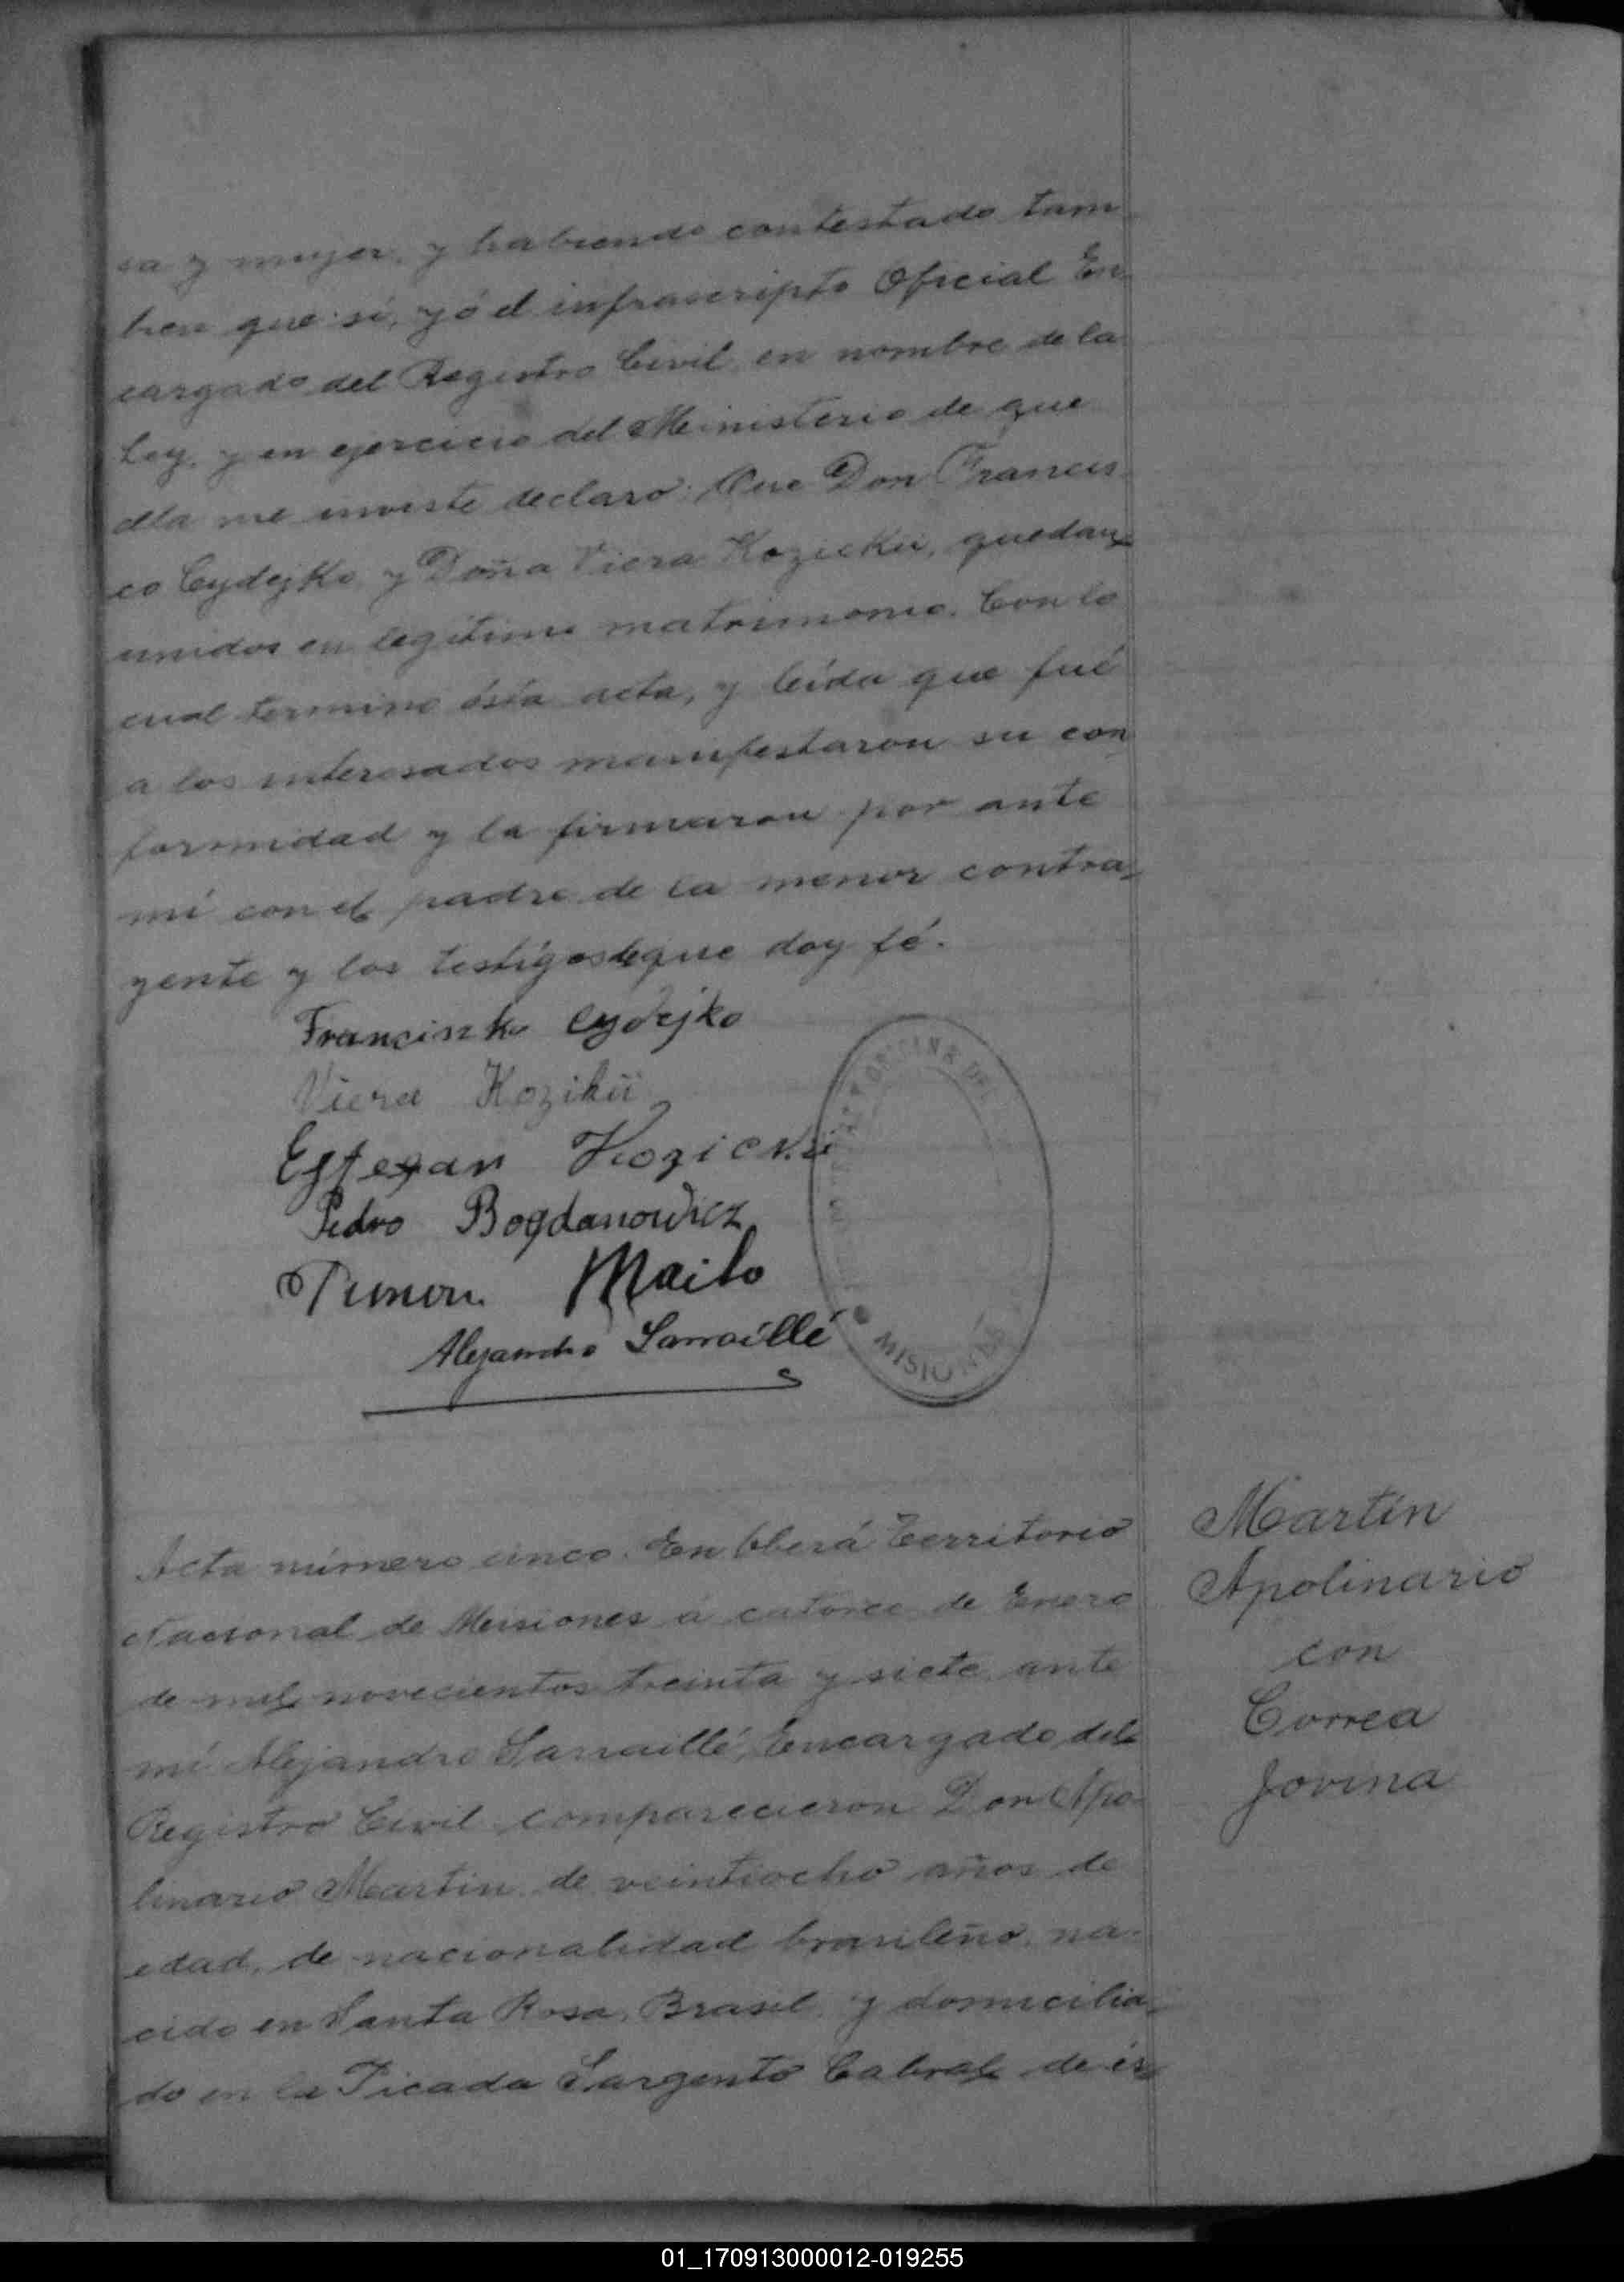 sa y mujer, y habiendo contestado tam
bien que sí, yó el infrascripto Oficial En
cargado del Registro Civil, en nombre de la
Ley, y en ejercicio del Ministerio de que
ella me inviste declaro: Que Don Francis
co Cydejko y Doña Viera Kozickii, quedan
unidos en legítimo matrimonio. Con lo
cual termino ésta acta, y leída que fué
a los interesados manifestaron su con
formidad y la firmaron por ante
mí con el padre de la menor contra
yente y los testigos de que doy fé.
Franciszko Cydejko
Viera Kozikii
Estegan Kozicki
Pedro Bogdanowicz
Timon Mailo
Alejandro Sarraillé
OFICINA DEL
MISIONES
Acta número cinco. En Oberá Territorio
Nacional de Misiones á catorce de Enero
de mil novecientos treinta y siete, ante
mí Alejandro Sarraillé, Encargado del
Registro Civil comparecieron Don Apo
linario Martin, de veintiocho años de
edad, de nacionalidad brasileño, na
cido en Santa Rosa, Brasil y domicilia
do en la Picada Sargento Cabral de és
Martín
Apolinario
con
Correa
Jovina
01_170913000012-019255